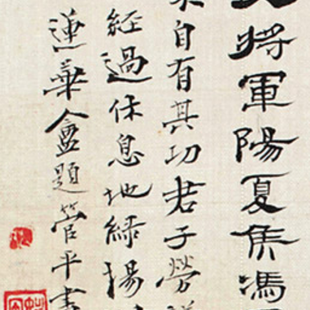 大將軍陽夏侯馮
自有其功君子勞謙
經過休息地綠楊
蓮華盦題管平書